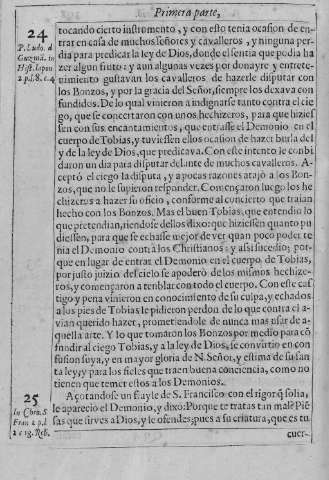 Primera parte,
24
P. Ludo. d
Guzmã. in
Hist. Iapon
2 p. l. 8. c. 4
tocando cierto instrumento, y con esto tenia ocasion de en-
trar en casa de muchos señores y cavalleros, y ninguna per-
dia para predicar la ley de Dios, donde el sentia que podia ha
zer algun fruto: y aun algunas vezes por donayre y entrete-
nimiento gustavan los cavalleros de hazerle disputar con
los Bonzos, y por la gracia del Señor, siempre los dexava con
fundidos. De lo qual vinieron a indignarse tanto contra el cie-
go, que se concertaron con unos hechizeros, para que hizies-
sen con sus encantamentos, que entrasse el Demonio en el
cuerpo de Tobias, y tuviessen ellos ocasion de hazer burla del
y de la ley de Dios, que predicava. Con este intento le combi
daron un dia para disputar delante de muchos cavalleros. A-
ceptò el ciego la disputa, y a pocas razones atajò a los Bon-
zos, que no le supieron responder. Començaron luego los he
chizeros a hazer su oficio, conforme al concierto que traian
hecho con los Bonzos. Mas el buen Tobias, que entendio lo
que pretendian, riendose dellos dixo: que hiziessen quanto pu
diessen, para que se echasse mejor de ver quan poco poder te
nia el Demonio contra los Christianos: y assi sucedio; por-
que en lugar de entrar el Demonio en el cuerpo de Tobias,
por justo juizio del cielo se apoderò de los mismos hechize-
ros, y començaron a temblar con todo el cuerpo. Con este cas
tigo y pena vinieron en conocimiento de su culpa, y echados
a los pies de Tobias le pidieron perdon de lo que contra el a-
vian querido hazer, prometiendole de nunca mas usar de a-
quella arte. Y lo que tomaron los Bonzos por medio para cõ
fundir al ciego Tobias, y a la ley de Dios, se convirtio en con
fusion suya, y en mayor gloria de N. Señor, y estima de su san
ta ley, y para los fieles que traen buena conciencia, como no
tienen que temer estos a los Demonios.
25
In Chro. S.
Fran 2 p. l.
2 c 13. Reb.
Açotandose un frayle de S. Francisco con el rigor q̃ solia,
le aparecio el Demonio, y dixo: Porque te tratas tan mal? Piẽ
sas que sirves a Dios, y le ofendes; pues a su criatura, que es tu
cuer-